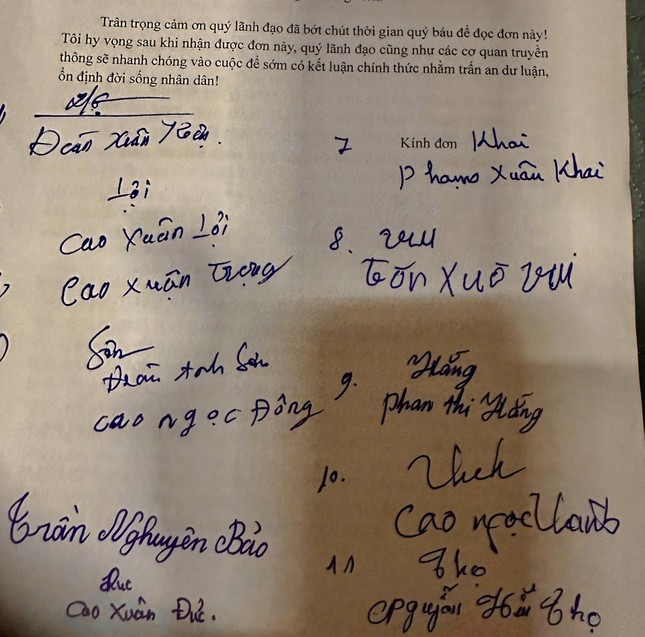 Trân trọng cảm ơn quý lãnh đạo đã bớt chút thời gian quý báu để đọc đơn này!
Tôi hy vọng sau khi nhận được đơn này, quý lãnh đạo cũng như các cơ quan truyền
thông sẽ nhanh chóng vào cuộc để sớm có kết luận chính thức nhằm trấn an dư luận,
ổn định đời sống nhân dân!
Xuân
Lội
Cao Xuân Lội
Cao Xuân Trọng
Sơn
Anh Sơn
Cao Ngọc Đông
Trần Nghuyên Bảo
Đức
Cao Xuân Đức.
7 Kính đơn Khai
Phạm Xuân Khai
8. Vui
Vui
9. Hằng
Phan Thị Hằng
10.
Cao Ngọc
11 Thọ
Thọ